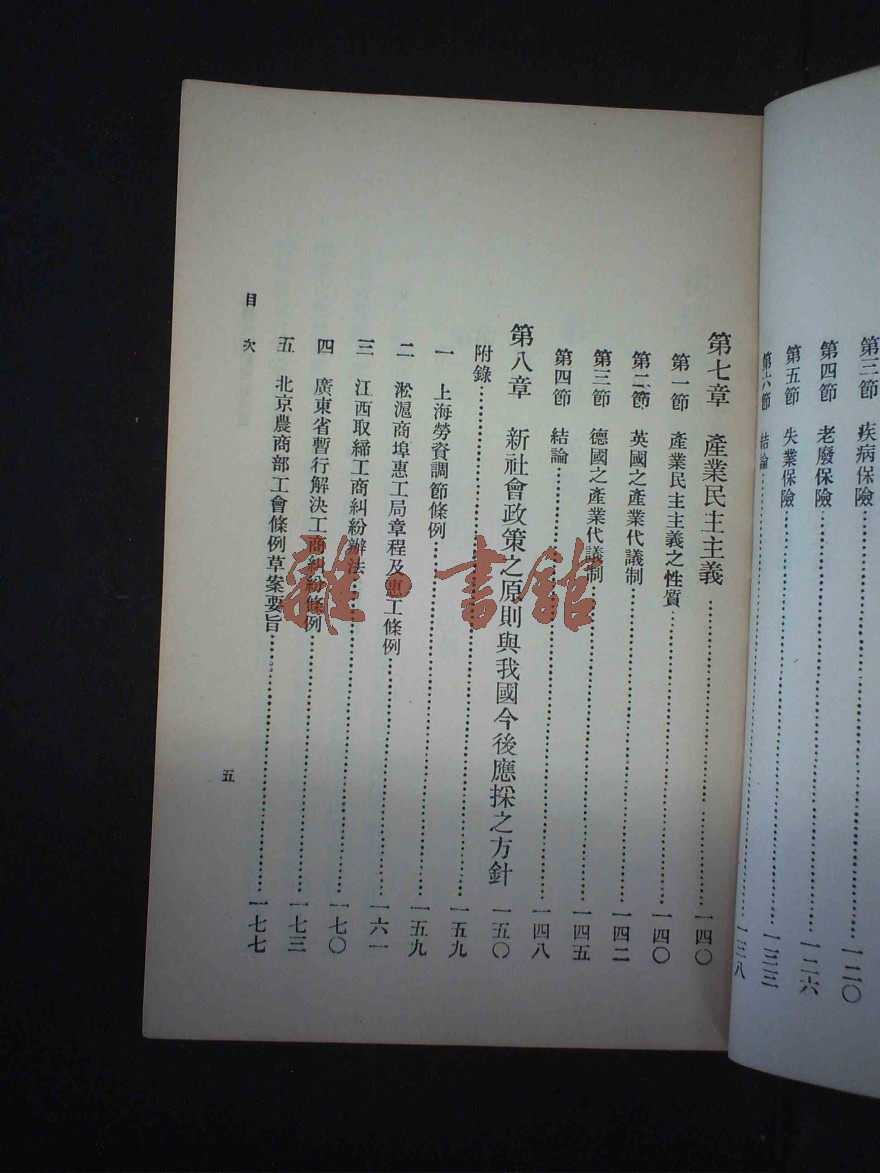 第三節 疾病保險……一二〇
第四節 老廢保險……一二六
第五節 失業保險……一三三
第六節 結論……一三八
第七章 產業民主主義……一四〇
第一節 產業民主主義之性質……一四〇
第二節 英國之產業代議制……一四二
第三節 德國之產業代議制……一四五
第四節 結論……一四八
第八章 新社會政策之原則與我國今後應採之方針 一五〇
附錄……一五九
一 上海勞資調節條例……一五九
二 淞滬商埠惠工局章程及惠工條例……一六一
三 江西取締工商糾紛辦法……一七〇
四 廣東省暫行解決工商糾紛條例……一七三
五 北京農商部工會條例草案要旨……一七七
目次
五
雜·書館